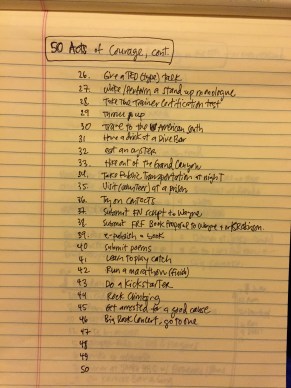 50 Acts of Courage, cont.
26. Give a TED (type) talk
27. Write/Perform a stand up monologue
28 Take the Trainer Certification test
29 Throw up
30 Travel to the American South
31 Have a drink at a Dive Bar
32 eat an oyster
33. Hike out of the Grand Canyon
34. Take Public Transportation at night
35. Visit (volunteer) at a prison
36. Try on contacts
37. Submit script to Wayne
38. Submit FRF Book Proposal to Wayne +
39. e-publish a book
40 Submit poems
41 Learn to play catch
42 Run a marathon (finish)
43 Do a Kickstarter
44 Rock Climbing
45 Get arrested for a good cause
46 Big Rock Concert, go to one
47
48
49
50